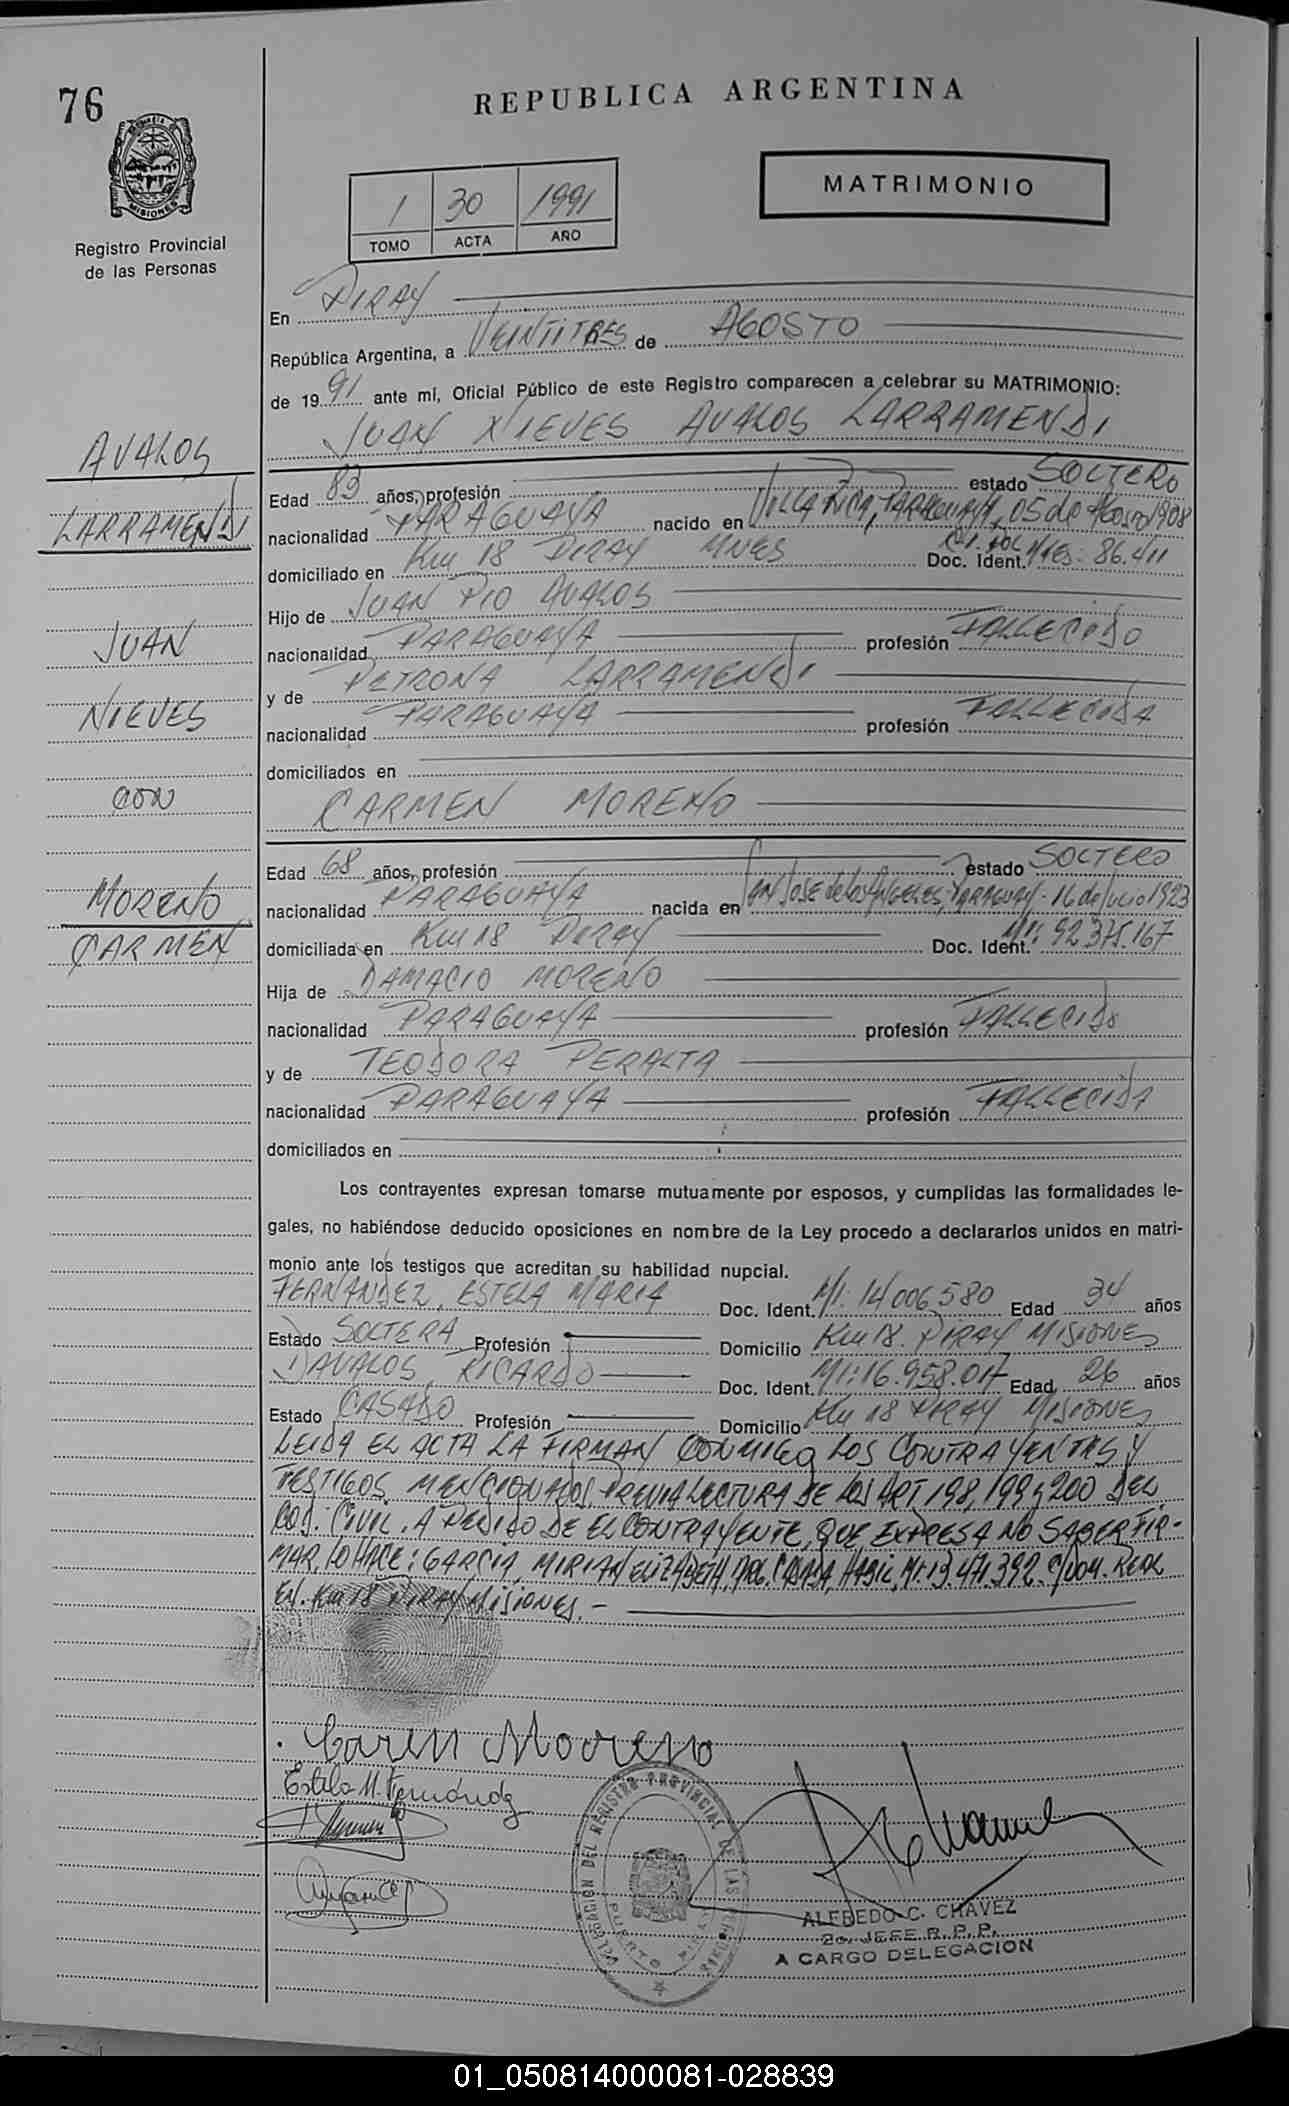 76
REPUBLICA ARGENTINA
MISIONES
Registro Provincial
de las Personas
1 30 1991
TOMO ACTA AÑO
MATRIMONIO
En PIRAY
República Argentina, a VEINTITRES de AGOSTO
de 19 91 ante mí, Oficial Público de este Registro comparecen a celebrar su MATRIMONIO:
JUAN NIEVES AVALOS LARRAMENDI
AVALOS
LARRAMENDI
JUAN
NIEVES
CON
MORENO
CARMEN
Edad 83 años, profesión estado SOLTERO
nacionalidad PARAGUAYA nacido en VILLA RICA, PARAGUAY, 05 de Agosto 1908
domiciliado en Km 18 PIRAY MNES Doc. Ident. C.I. POL. Mnes: 86.411
Hijo de JUAN PIO AVALOS
nacionalidad PARAGUAYA profesión FALLECIDO
y de PETRONA LARRAMENDI
nacionalidad PARAGUAYA profesión FALLECIDA
domiciliados en
CARMEN MORENO
Edad 68 años, profesión estado SOLTERO
nacionalidad PARAGUAYA nacida en SAN JOSE de los ANGELES, PARAGUAY - 16 de Julio 1923
domiciliada en Km 18 PIRAY Doc. Ident. MI: 92.375.167
Hija de DAMACIO MORENO
nacionalidad PARAGUAYA profesión FALLECIDO
y de TEODORA PERALTA
nacionalidad PARAGUAYA profesión FALLECIDA
domiciliados en
Los contrayentes expresan tomarse mutuamente por esposos, y cumplidas las formalidades le-
gales, no habiéndose deducido oposiciones en nombre de la Ley procedo a declararlos unidos en matri-
monio ante los testigos que acreditan su habilidad nupcial.
FERNANDEZ, ESTELA MARIA Doc. Ident. MI: 14006580 Edad 34 años
Estado SOLTERA Profesión Domicilio Km 18. PIRAY MISIONES
DAVALOS, RICARDO Doc. Ident. MI: 16.958.017 Edad 26 años
Estado CASADO Profesión Domicilio Km 18 PIRAY MISIONES
LEIDA EL ACTA LA FIRMAN CONMIGO LOS CONTRAYENTES Y
TESTIGOS MENCIONADOS. PREVIA LECTURA DE LOS ART. 198, 199 y 200 DEL
COD. CIVIL. A PEDIDO DE EL CONTRAYENTE, QUE EXPRESA NO SABER FIR-
MAR, LO HACE: GARCIA, MIRIAN ELIZABETH, ARG. CASADA, HABIL, MI: 13.471.392. C/DOM. REAL
EN. Km 18 PIRAY MISIONES.-
Caren Moreno
Estela M. Fernández
DELEGACION DEL REGISTRO PROVINCIAL DE LAS PERSONAS
PUERTO PIRAY
ALFREDO C. CHAVEZ
2o. JEFE R. P. P.
A CARGO DELEGACION
01_050814000081-028839